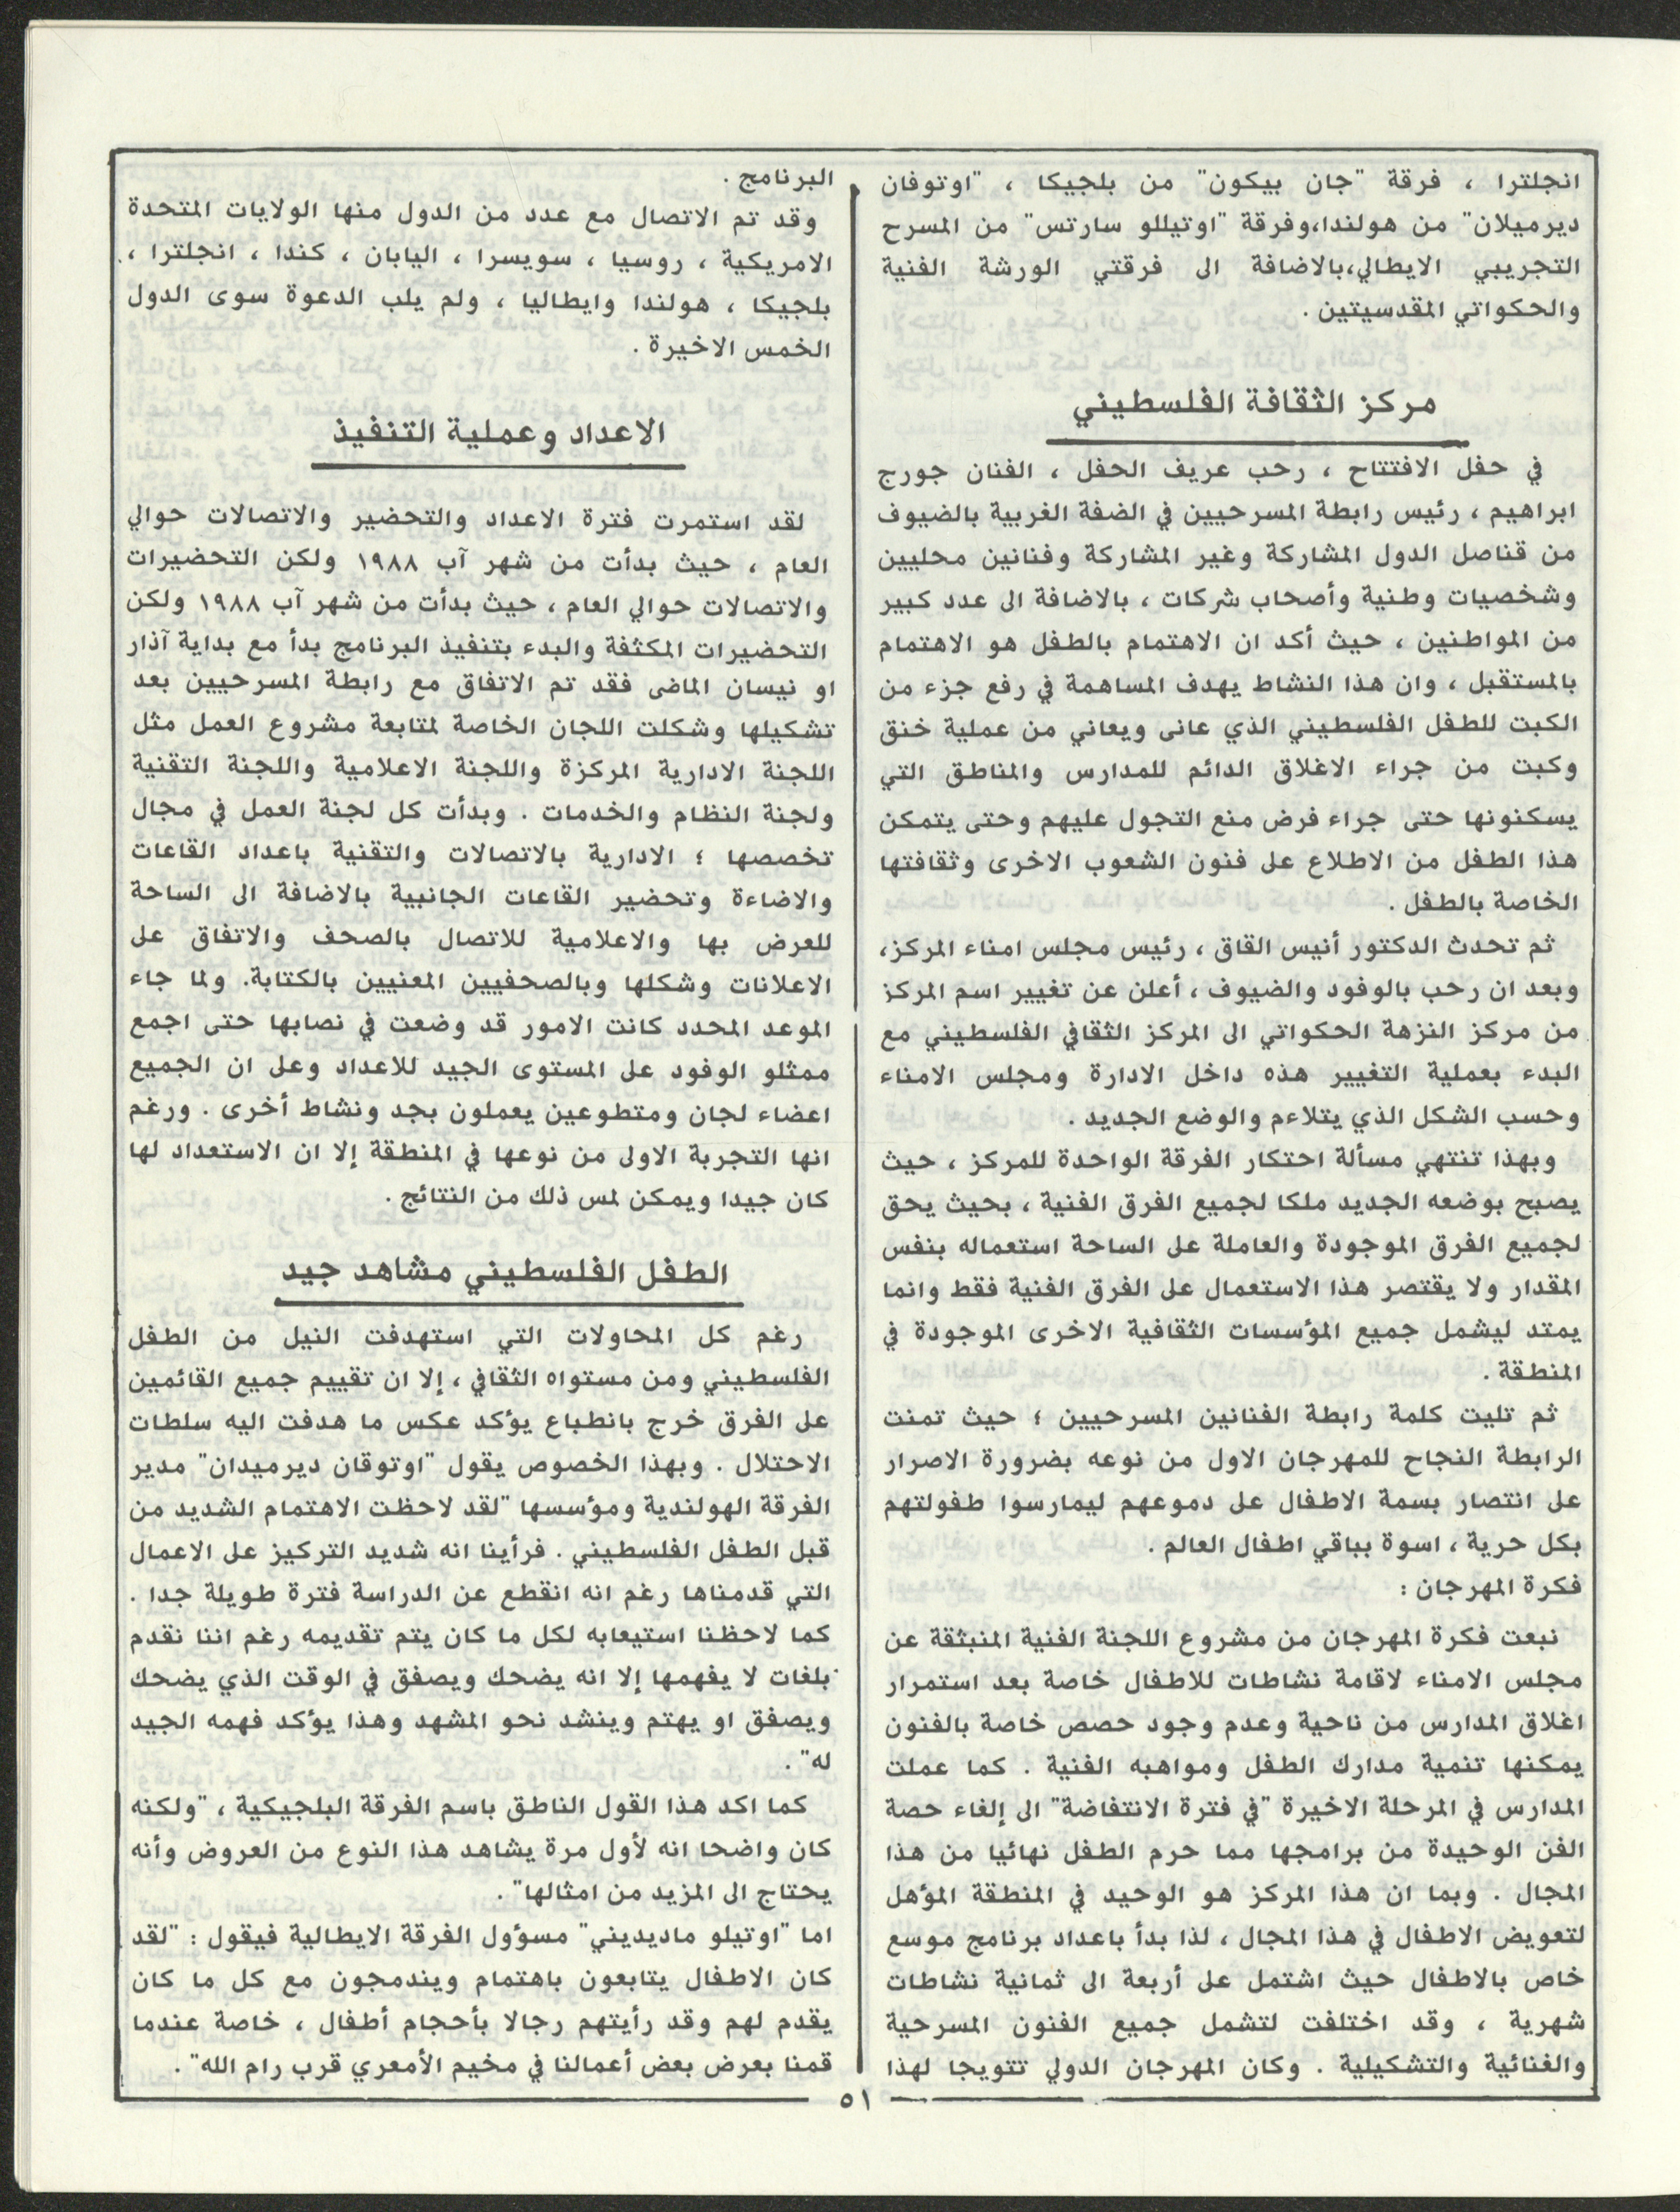 انجلترا ، فرقة "جان بيكون" من بلجيكا ، "اوتوفان
ديرميلان" من هولندا،وفرقة "اوتيللو سارتس" من المسرح
التجريبي الايطالي،بالاضافة الى فرقتي الورشة الفنية
والحكواتي المقدسيتين .
مركز الثقافة الفلسطيني
في حفل الافتتاح ، رحب عريف الحفل ، الفنان جورج
ابراهيم ، رئيس رابطة المسرحيين في الضفة الغربية بالضيوف
من قناصل الدول المشاركة وغير المشاركة وفنانين محليين
وشخصيات وطنية وأصحاب شركات ، بالاضافة الى عدد كبير
من المواطنين ، حيث أكد ان الاهتمام بالطفل هو الاهتمام
بالمستقبل ، وان هذا النشاط يهدف المساهمة في رفع جزء من
الكبت للطفل الفلسطيني الذي عانى ويعاني من عملية خنق
وكبت من جراء الاغلاق الدائم للمدارس والمناطق التي
يسكنونها حتى جراء فرض منع التجول عليهم وحتى يتمكن
هذا الطفل من الاطلاع على فنون الشعوب الاخرى وثقافتها
الخاصة بالطفل .
ثم تحدث الدكتور أنيس القاق ، رئيس مجلس امناء المركز،
وبعد ان رحب بالوفود والضيوف ، أعلن عن تغيير اسم المركز
من مركز النزهة الحكواتي الى المركز الثقافي الفلسطيني مع
البدء بعملية التغيير هذه داخل الادارة ومجلس الامناء
وحسب الشكل الذي يتلاءم والوضع الجديد .
وبهذا تنتهي مسألة احتكار الفرقة الواحدة للمركز ، حيث
يصبح بوضعه الجديد ملكا لجميع الفرق الفنية ، بحيث يحق
لجميع الفرق الموجودة والعاملة على الساحة استعماله بنفس
المقدار ولا يقتصر هذا الاستعمال على الفرق الفنية فقط وانما
يمتد ليشمل جميع المؤسسات الثقافية الاخرى الموجودة في
المنطقة .
ثم تليت كلمة رابطة الفنانين المسرحيين ؛ حيث تمنت
الرابطة النجاح للمهرجان الاول من نوعه بضرورة الاصرار
على انتصار بسمة الاطفال على دموعهم ليمارسوا طفولتهم
بكل حرية ، اسوة بباقي اطفال العالم .
فكرة المهرجان :
نبعت فكرة المهرجان من مشروع اللجنة الفنية المنبثقة عن
مجلس الامناء لاقامة نشاطات للاطفال خاصة بعد استمرار
اغلاق المدارس من ناحية وعدم وجود حصص خاصة بالفنون
يمكنها تنمية مدارك الطفل ومواهبه الفنية . كما عملت
المدارس في المرحلة الاخيرة "في فترة الانتفاضة" الى إلغاء حصة
الفن الوحيدة من برامجها مما حرم الطفل نهائيا من هذا
المجال . وبما ان هذا المركز هو الوحيد في المنطقة المؤهل
لتعويض الاطفال في هذا المجال ، لذا بدأ باعداد برنامج موسع
خاص بالاطفال حيث اشتمل على أربعة الى ثمانية نشاطات
شهرية ، وقد اختلفت لتشمل جميع الفنون المسرحية
والغنائية والتشكيلية . وكان المهرجان الدولي تتويجا لهذا
البرنامج .
وقد تم الاتصال مع عدد من الدول منها الولايات المتحدة
الامريكية ، روسيا ، سويسرا ، اليابان ، كندا ، انجلترا ،
بلجيكا ، هولندا وايطاليا ، ولم يلب الدعوة سوى الدول
الخمس الاخيرة .
الاعداد وعملية التنفيذ
لقد استمرت فترة الاعداد والتحضير والاتصالات حوالي
العام ، حيث بدأت من شهر آب ١٩٨٨ ولكن التحضيرات
والاتصالات حوالي العام ، حيث بدأت من شهر آب ١٩٨٨ ولكن
التحضيرات المكثفة والبدء بتنفيذ البرنامج بدأ مع بداية آذار
او نيسان الماضى فقد تم الاتفاق مع رابطة المسرحيين بعد
تشكيلها وشكلت اللجان الخاصة لمتابعة مشروع العمل مثل
اللجنة الادارية المركزة واللجنة الاعلامية واللجنة التقنية
ولجنة النظام والخدمات . وبدأت كل لجنة العمل في مجال
تخصصها ؛ الادارية بالاتصالات والتقنية باعداد القاعات
والاضاءة وتحضير القاعات الجانبية بالاضافة الى الساحة
للعرض بها والاعلامية للاتصال بالصحف والاتفاق على
الاعلانات وشكلها وبالصحفيين المعنيين بالكتابة. ولما جاء
الموعد المحدد كانت الامور قد وضعت في نصابها حتى اجمع
ممثلو الوفود على المستوى الجيد للاعداد وعلى ان الجميع
اعضاء لجان ومتطوعين يعملون بجد ونشاط أخرى . ورغم
انها التجربة الاولى من نوعها في المنطقة إلا ان الاستعداد لها
كان جيدا ويمكن لمس ذلك من النتائج .
الطفل الفلسطيني مشاهد جيد
رغم كل المحاولات التي استهدفت النيل من الطفل
الفلسطيني ومن مستواه الثقافي ، إلا ان تقييم جميع القائمين
على الفرق خرج بانطباع يؤكد عكس ما هدفت اليه سلطات
الاحتلال . وبهذا الخصوص يقول "اوتوڤان ديرميدان" مدير
الفرقة الهولندية ومؤسسها "لقد لاحظت الاهتمام الشديد من
قبل الطفل الفلسطيني . فرأينا انه شديد التركيز على الاعمال
التي قدمناها رغم انه انقطع عن الدراسة فترة طويلة جدا .
كما لاحظنا استيعابه لكل ما كان يتم تقديمه رغم اننا نقدم
بلغات لا يفهمها إلا انه يضحك ويصفق في الوقت الذي يضحك
ويصفق او يهتم وينشد نحو المشهد وهذا يؤكد فهمه الجيد
له" .
كما اكد هذا القول الناطق باسم الفرقة البلجيكية ، "ولكنه
كان واضحا انه لأول مرة يشاهد هذا النوع من العروض وأنه
يحتاج الى المزيد من امثالها" .
اما "اوتيلو ماديديني" مسؤول الفرقة الايطالية فيقول : "لقد
كان الاطفال يتابعون باهتمام ويندمجون مع كل ما كان
يقدم لهم وقد رأيتهم رجالا بأحجام أطفال ، خاصة عندما
قمنا بعرض بعض أعمالنا في مخيم الأمعري قرب رام الله" .
٥١